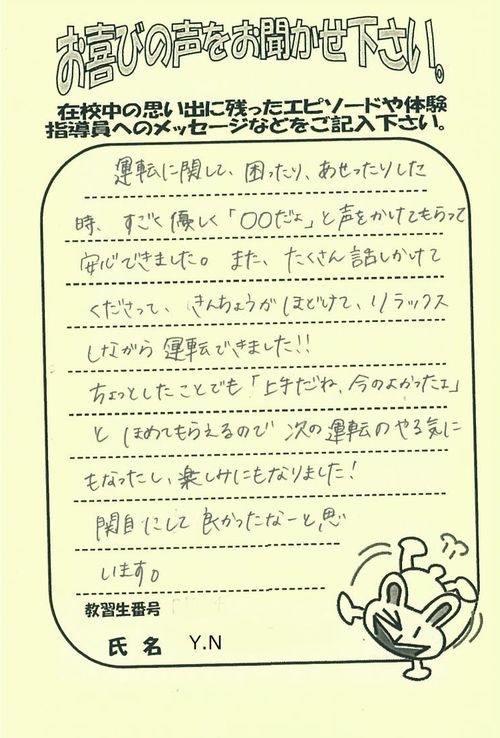 お喜びの声をお聞かせ下さい。
在校中の思い出に残ったエピソードや体験
指導員へのメッセージなどをご記入下さい。
運転に関して、困ったり、あせったりした
時、すごく優しく「〇〇だよ」と声をかけてもらって
安心できました。また、たくさん話しかけて
くださって、きんちょうがほどけて、リラックス
しながら運転できました!!
ちょっとしたことでも「上手だね、今のよかったよ」
と ほめてもらえるので 次の運転のやる気に
もなったし、楽しみにもなりました!
関自にして良かったなーと思
います。
教習生番号
氏名 Y.N